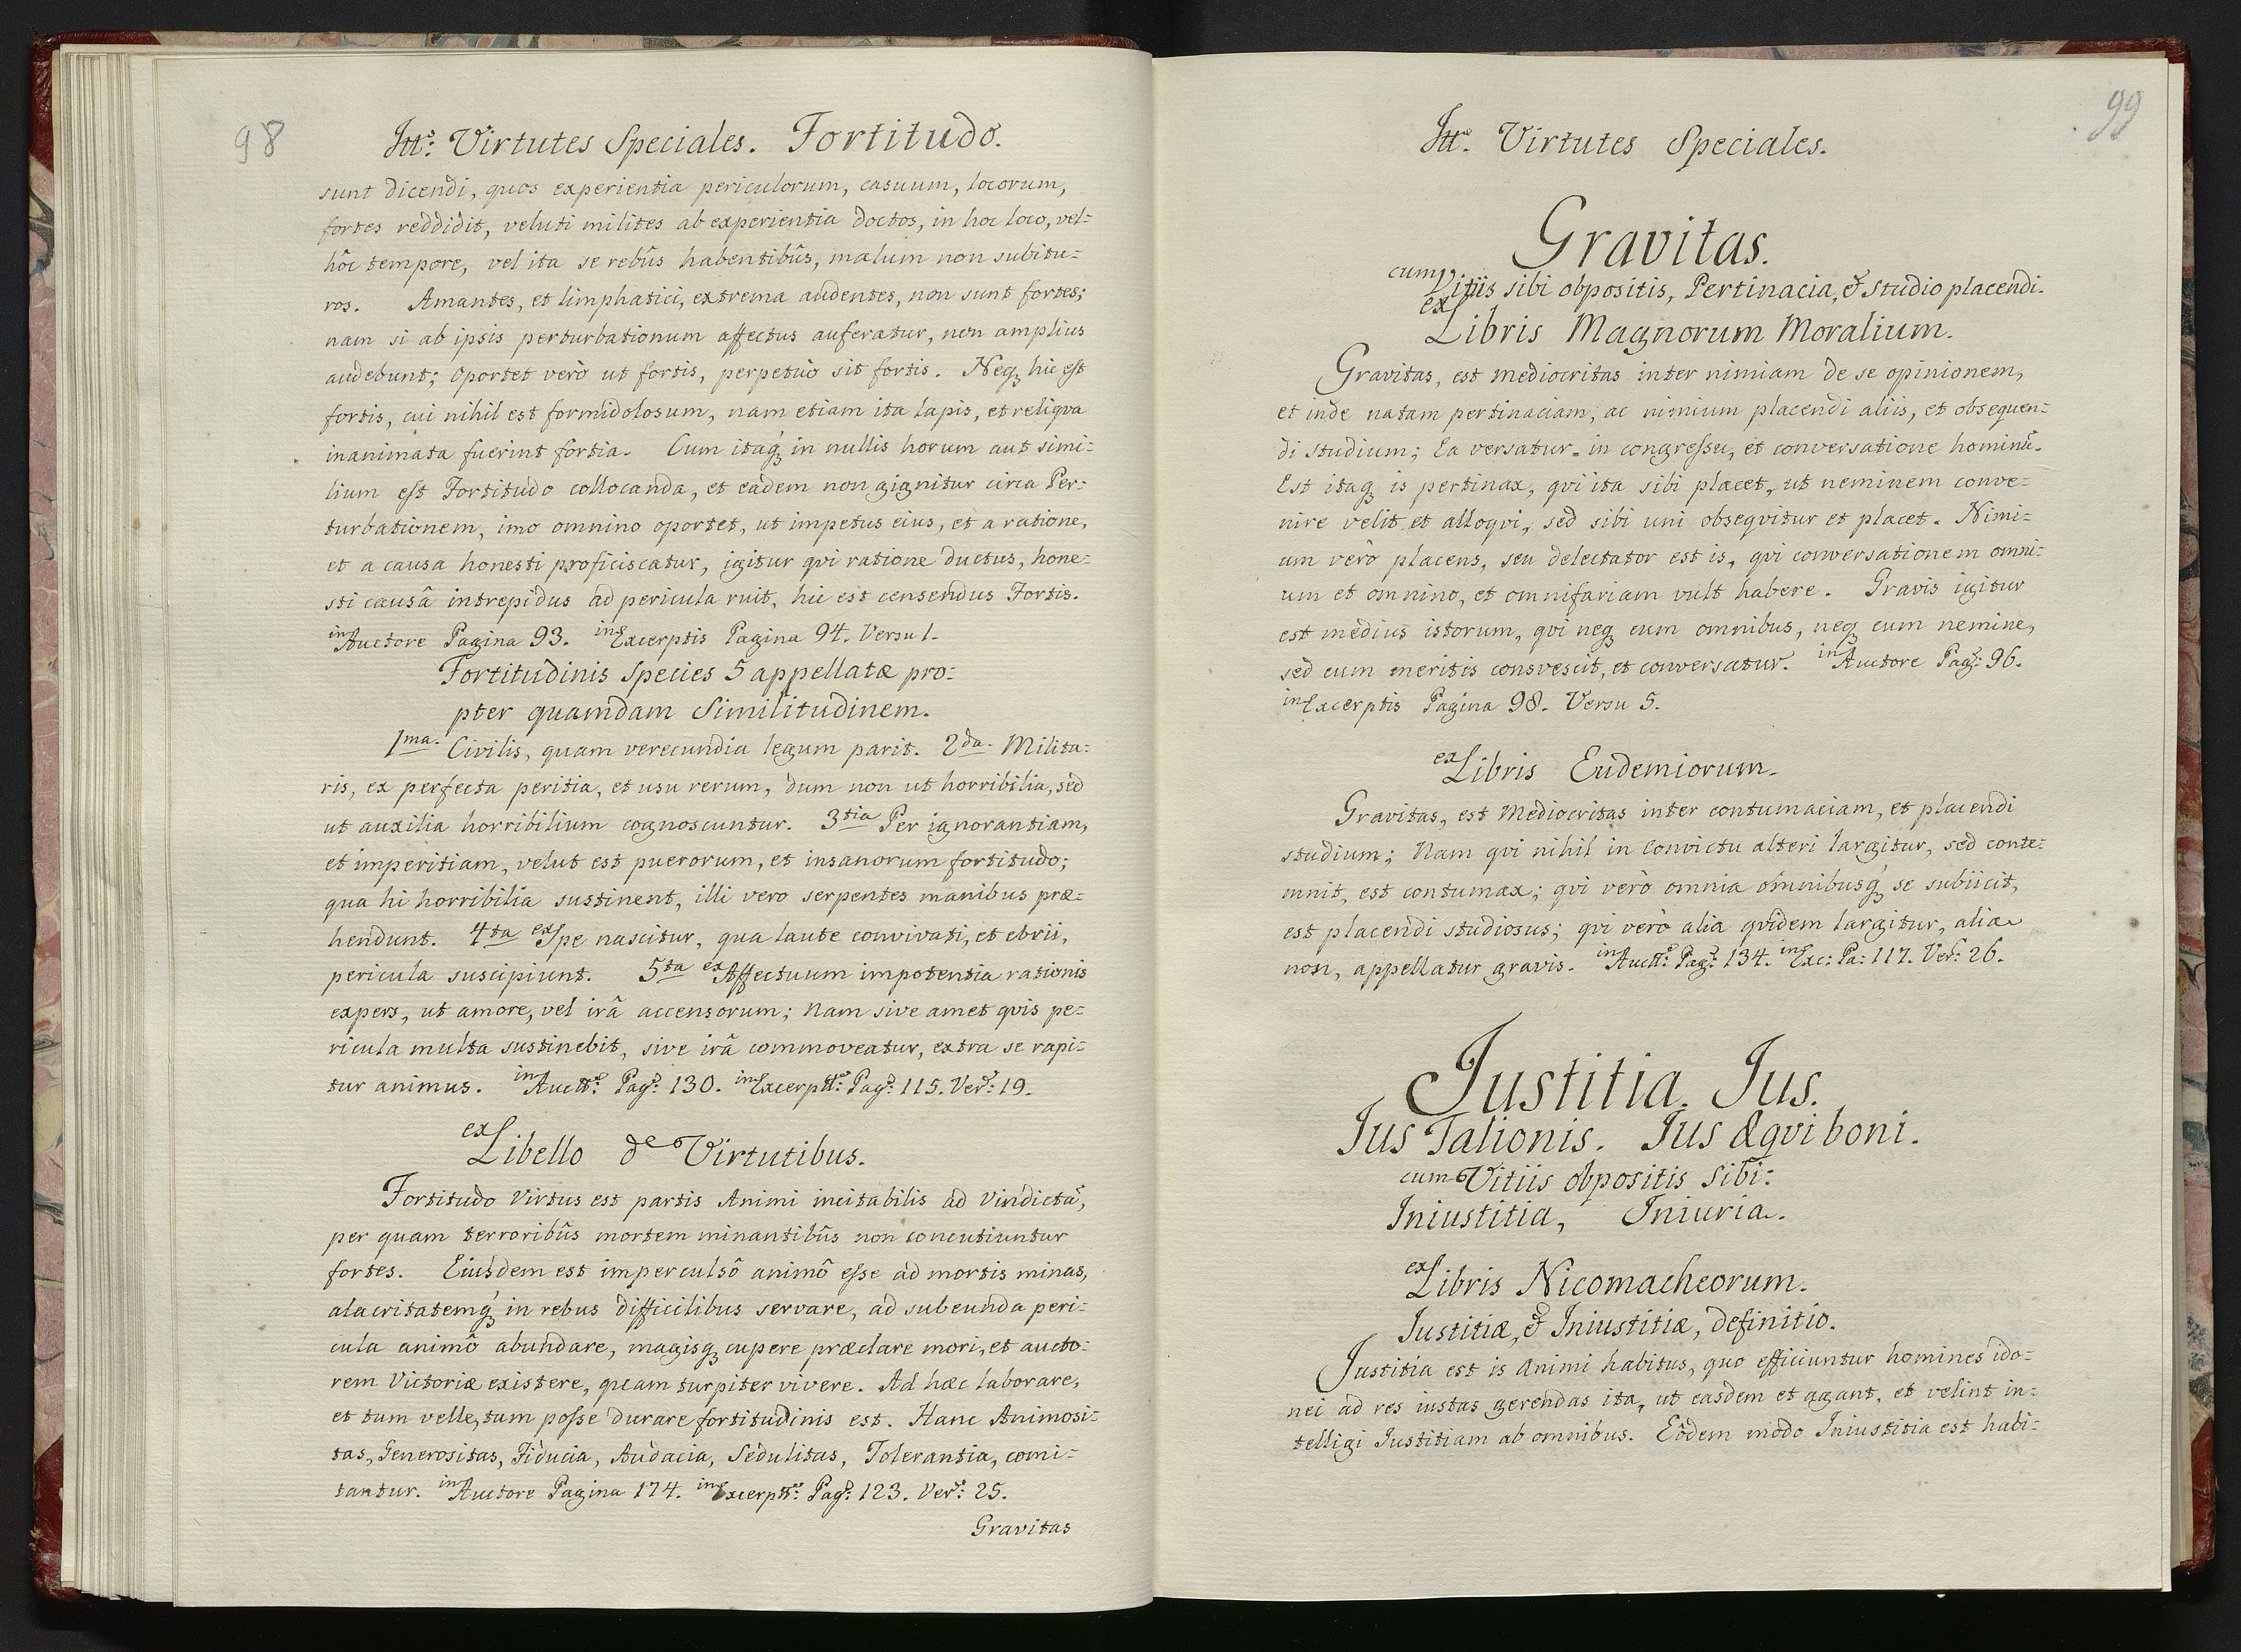 98
Itt⁰: Virtutes Speciales. Fortitudo.
sunt dicendi, quos experientia periculorum, casuum, locorum,
fortes reddidit, veluti milites ab experientia doctos, in hoc loco, vel-
hôc tempore, vel ita se rebûs habentibûs, malum non subitu-
ros. Amantes, et limphatici, extrema audentes, non sunt fortes;
nam si ab ipsis perturbationum affectus auferatur, non amplius
audebunt; Oportet verò ut fortis, perpetuò sit fortis. Neqȝ hic est
fortis, cui nihil est formidolosum, nam etiam ita lapis, et reliqva
inanimata fuerint fortia. Cum itaqȝ in nullis horum aut simi-
lium est Fortitudo collocanda, et eadem non gignitur circa Per-
turbationem, imo omnino oportet, ut impetus eius, et a ratione,
et a causa honesti proficiscatur, igitur qvi ratione ductus, hone-
sti causâ intrepidus ad pericula ruit, hic est censendus Fortis.
in Auctore Pagina 93. in Excerptis Pagina 94. Versu 1.
Fortitudinis Species 5 appellatæ pro-
pter quamdam Similitudinem.
1ma. Civilis, quam verecundia legum parit. 2da. Milita-
ris, ex perfecta peritia, et usu rerum, dum non ut horribilia, sed
ut auxilia horribilium cognoscuntur. 3tia Per ignorantiam,
et imperitiam, velut est puerorum, et insanorum fortitudo;
qua hi horribilia sustinent, illi vero serpentes manibus præ-
hendunt. 4ta ex Spe nascitur, qua laute convivati, et ebrii,
pericula suscipiunt. 5ta ex Affectuum impotentia rationis
expers, ut amore, vel irâ accensorum; Nam sive amet qvis pe-
ricula multa sustinebit, sive irâ commoveatur, extra se rapi-
tur animus. in Auctt: Pag: 130. in Excerptt: Pag: 115. Ver: 19.
ex Libello de Virtutibus.
Fortitudo Virtus est partis Animi incitabilis ad Vindictã,
per quam terroribûs mortem minantibûs non concutiuntur
fortes. Eiusdem est imperculsô animô esse ad mortis minas,
alacritatemqȝ in rebus difficilibus servare, ad subeunda peri-
cula animô abundare, magisqȝ cupere præclare mori, et aucto-
rem Victoriæ existere, quam turpiter vivere. Ad hæc laborare,
et tum velle, tum posse durare fortitudinis est. Hanc Animosi-
tas, Generositas, Fiducia, Audacia, Sedulitas, Tolerantia, comi-
tantur. in Auctore Pagina 174. in Excerptt: Pag: 123. Ver: 25.
Gravitas
99
Itt⁰. Virtutes Speciales.
Gravitas.
cum Vitiis sibi obpositis, Pertinacia, & studio placendi.
ex Libris Magnorum Moralium.
Gravitas, est Mediocritas inter nimiam de se opinionem,
et inde natam pertinaciam, ac nimium placendi aliis, et obsequen-
di studium; Ea versatur in congressu, et conversatione hominũ.
Est itaqȝ is pertinax, qvi ita sibi placet, ut neminem conve-
nire velit et alloqvi, sed sibi uni obseqvitur et placet. Nimi-
um verò placens, seu delectator est is, qvi conversationem omni-
um et omnino, et omnifariam vult habere. Gravis igitur
est medius istorum, qvi neqȝ cum omnibus, neqȝ cum nemine,
sed cum meritis consvescit, et conversatur. in Auctore Pag: 96.
in Excerptis Pagina 98. Versu 5.
ex Libris Eudemiorum.
Gravitas, est Mediocritas inter contumaciam, et placendi
studium; Nam qvi nihil in Convictu alteri largitur, sed conte-
mnit, est contumax; qvi verò omnia omnibusqȝ se subiicit,
est placendi studiosus; qvi verò alia qvidem largitur, alia
non, appellatur gravis. in Auctt: Pag: 134. in Exc: Pa: 117. Ver: 26.
Justitia. Jus.
Jus Talionis. Jus Æqvi boni.
cum Vitiis obpositis sibi:
Iniustitia, Iniuria.
ex Libris Nicomacheorum.
Iustitiæ, & Iniustitiæ, definitio.
Justitia est is Animi habitus, quo efficiuntur homines ido-
nei ad res iustas gerendas ita, ut easdem et agant, et velint in-
telligi Iustitiam ab omnibus. Eôdem modo Iniustitia est habi-